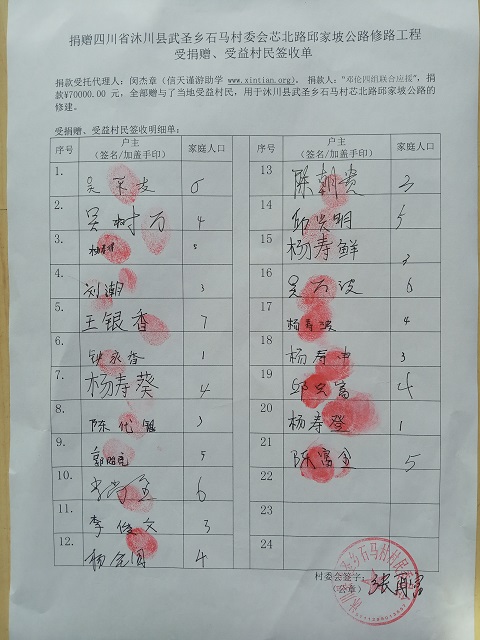 捐赠四川省沐川县武圣乡石马村委会芯北路邱家坡公路修路工程
受捐赠、受益村民签收单
捐款受托代理人：闵杰章（信天谨游助学 www.xintian.org)，捐款人：“邓伦四组联合应援”，捐
款¥70000.00 元，全部赠与了当地受益村民，用于沐川县武圣乡石马村芯北路邱家坡公路的
修建。
受捐赠、受益村民签收明细单：
序号 户主（签名/加盖手印） 家庭人口
1. 吴 友
2. 吴树万 4
3. 杨寿
4. 刘潮 3
5. 王银香 7
6. 香 1
7. 杨寿葵 4
8. 陈代 3
9. 郭 5
10. 李尚全 6
11. 李俊文 3
12. 杨 4
序号 户主（签名/加盖手印） 家庭人口
13 陈朝贵 3
14 邱兴明 5
15 杨寿鲜 3
16 吴万波 6
17 杨寿波 4
18 杨寿中 3
19 邱兴富 4
20 杨寿登 1
21 陈富全 5
22
23
24
村委会签字：
（公章）